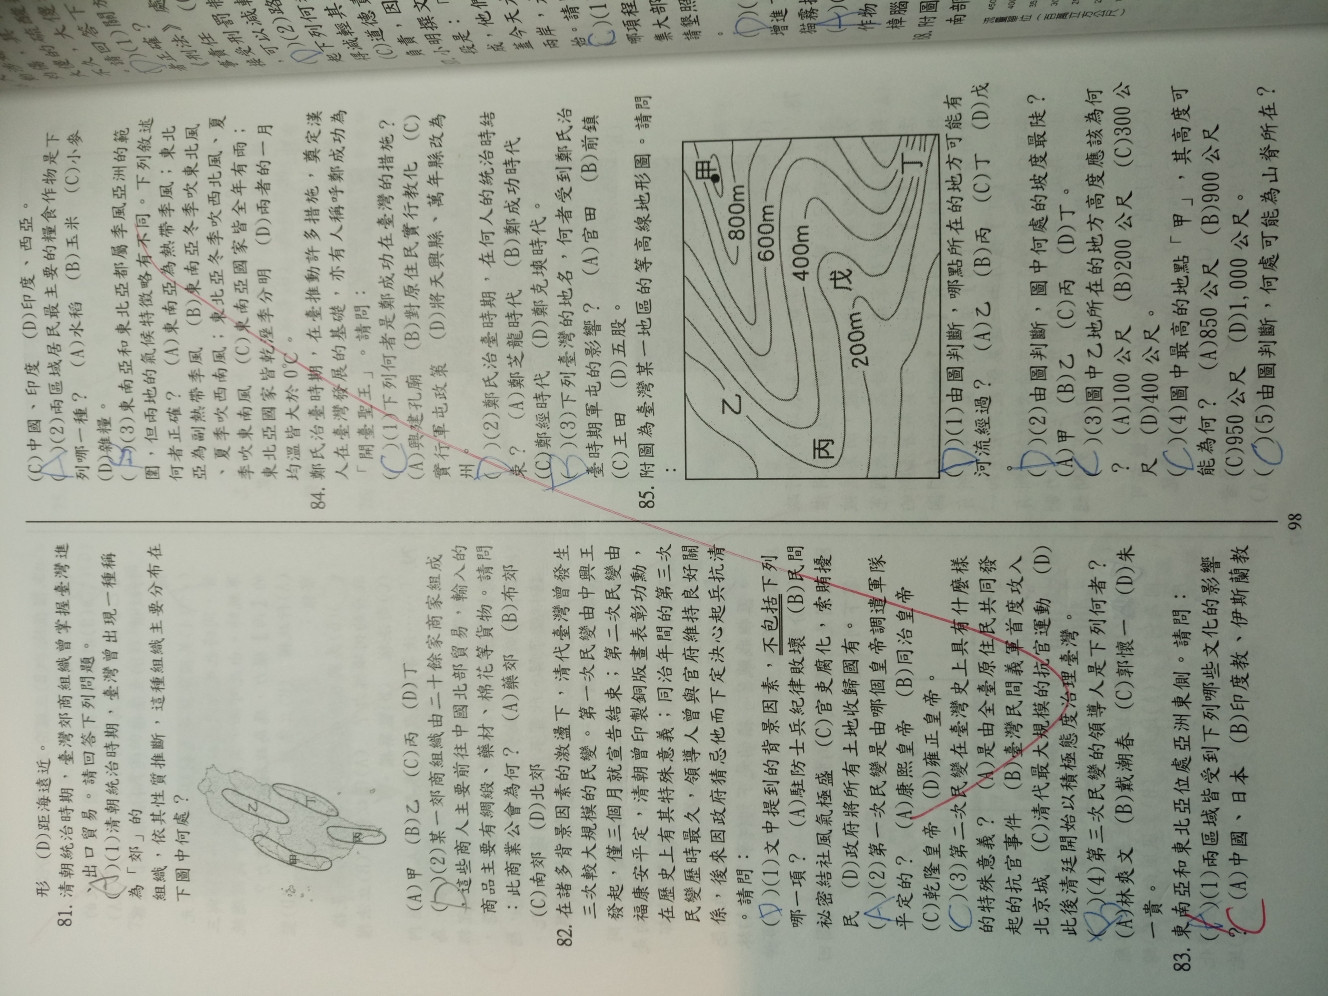 形 (D)距海遠近。
81. 清朝統治時期，臺灣郊商組織曾掌握臺灣進
、出口貿易。請回答下列問題。
(A)(1)清朝統治時期，臺灣曾出現一種稱
為「郊」的
組織，依其性質推斷，這種組織主要分布在
下圖中何處？
甲
乙
丙
丁
(A)甲 (B)乙 (C)丙 (D)丁
(D)(2)某一郊商組織由二十餘家商家組成
，這些商人主要前往中國北部貿易，輸入的
商品主要有綢緞、藥材、棉花等貨物。請問
：此商業公會為何？ (A)藥郊 (B)布郊
(C)南郊 (D)北郊
82. 在諸多背景因素的激盪下，清代臺灣曾發生
三次較大規模的民變。第一次民變由中興王
發起，僅三個月就宣告結束；第二次民變由
福康安平定，清朝曾印製銅版畫表彰功勳，
在歷史上有其特殊意義；同治年間的第三次
民變歷時最久，領導人曾與官府維持良好關
係，後來因政府猜忌他而下定決心起兵抗清
。請問：
(D)(1)文中提到的背景因素，不包括下列
哪一項？ (A)駐防士兵紀律敗壞 (B)民間
祕密結社風氣極盛 (C)官吏腐化，索賄擾
民 (D)政府將所有土地收歸國有。
(A)(2)第一次民變是由哪個皇帝調遣軍隊
平定的？ (A)康熙皇帝 (B)同治皇帝
(C)乾隆皇帝 (D)雍正皇帝。
(C)(3)第二次民變在臺灣史上具有什麼樣
的特殊意義？ (A)是由全臺原住民共同發
起的抗官事件 (B)臺灣民間義軍首度攻入
北京城 (C)清代最大規模的抗官運動 (D)
此後清廷開始以積極態度治理臺灣。
(B)(4)第三次民變的領導人是下列何者？
(A)林爽文 (B)戴潮春 (C)郭懷一 (D)朱
一貴。
83. 東南亞和東北亞位處亞洲東側。請問：
(A)(1)兩區域皆受到下列哪些文化的影響
？ (A)中國、日本 (B)印度教、伊斯蘭教
C
(C)中國、印度 (D)印度、西亞。
(A)(2)兩區域居民最主要的糧食作物是下
列哪一種？ (A)水稻 (B)玉米 (C)小麥
(D)雜糧。
(B)(3)東南亞和東北亞都屬季風亞洲的範
圍，但兩地的氣候特徵略有不同。下列敘述
何者正確？ (A)東南亞為熱帶季風；東北
亞為副熱帶季風 (B)東南亞冬季吹東北風
、夏季吹西南風；東北亞冬季吹西北風、夏
季吹東南風 (C)東南亞國家皆全年有雨；
東北亞國家皆乾溼季分明 (D)兩者的一月
均溫皆大於0℃。
84. 鄭氏治臺時期，在臺推動許多措施，奠定漢
人在臺灣發展的基礎，亦有人稱呼鄭成功為
「開臺聖王」。請問：
(C)(1)下列何者是鄭成功在臺灣的措施？
(A)興建孔廟 (B)對原住民實行教化 (C)
實行軍屯政策 (D)將天興縣、萬年縣改為
州。
(D)(2)鄭氏治臺時期，在何人的統治時結
束？ (A)鄭芝龍時代 (B)鄭成功時代
(C)鄭經時代 (D)鄭克塽時代。
(B)(3)下列臺灣的地名，何者受到鄭氏治
臺時期軍屯的影響？ (A)官田 (B)前鎮
(C)王田 (D)五股。
85. 附圖為臺灣某一地區的等高線地形圖。請問
：
甲
乙
丙
丁
戊
800m
600m
400m
200m
(D)(1)由圖判斷，哪點所在的地方可能有
河流經過？ (A)乙 (B)丙 (C)丁 (D)戊
。
(D)(2)由圖判斷，圖中何處的坡度最陡？
(A)甲 (B)乙 (C)丙 (D)丁。
(C)(3)圖中乙地所在的地方高度應該為何
？ (A)100 公尺 (B)200 公尺 (C)300 公
尺 (D)400 公尺。
(C)(4)圖中最高的地點「甲」，其高度可
能為何？ (A)850 公尺 (B)900 公尺
(C)950 公尺 (D)1,000 公尺。
(C)(5)由圖判斷，何處可能為山脊所在？
98